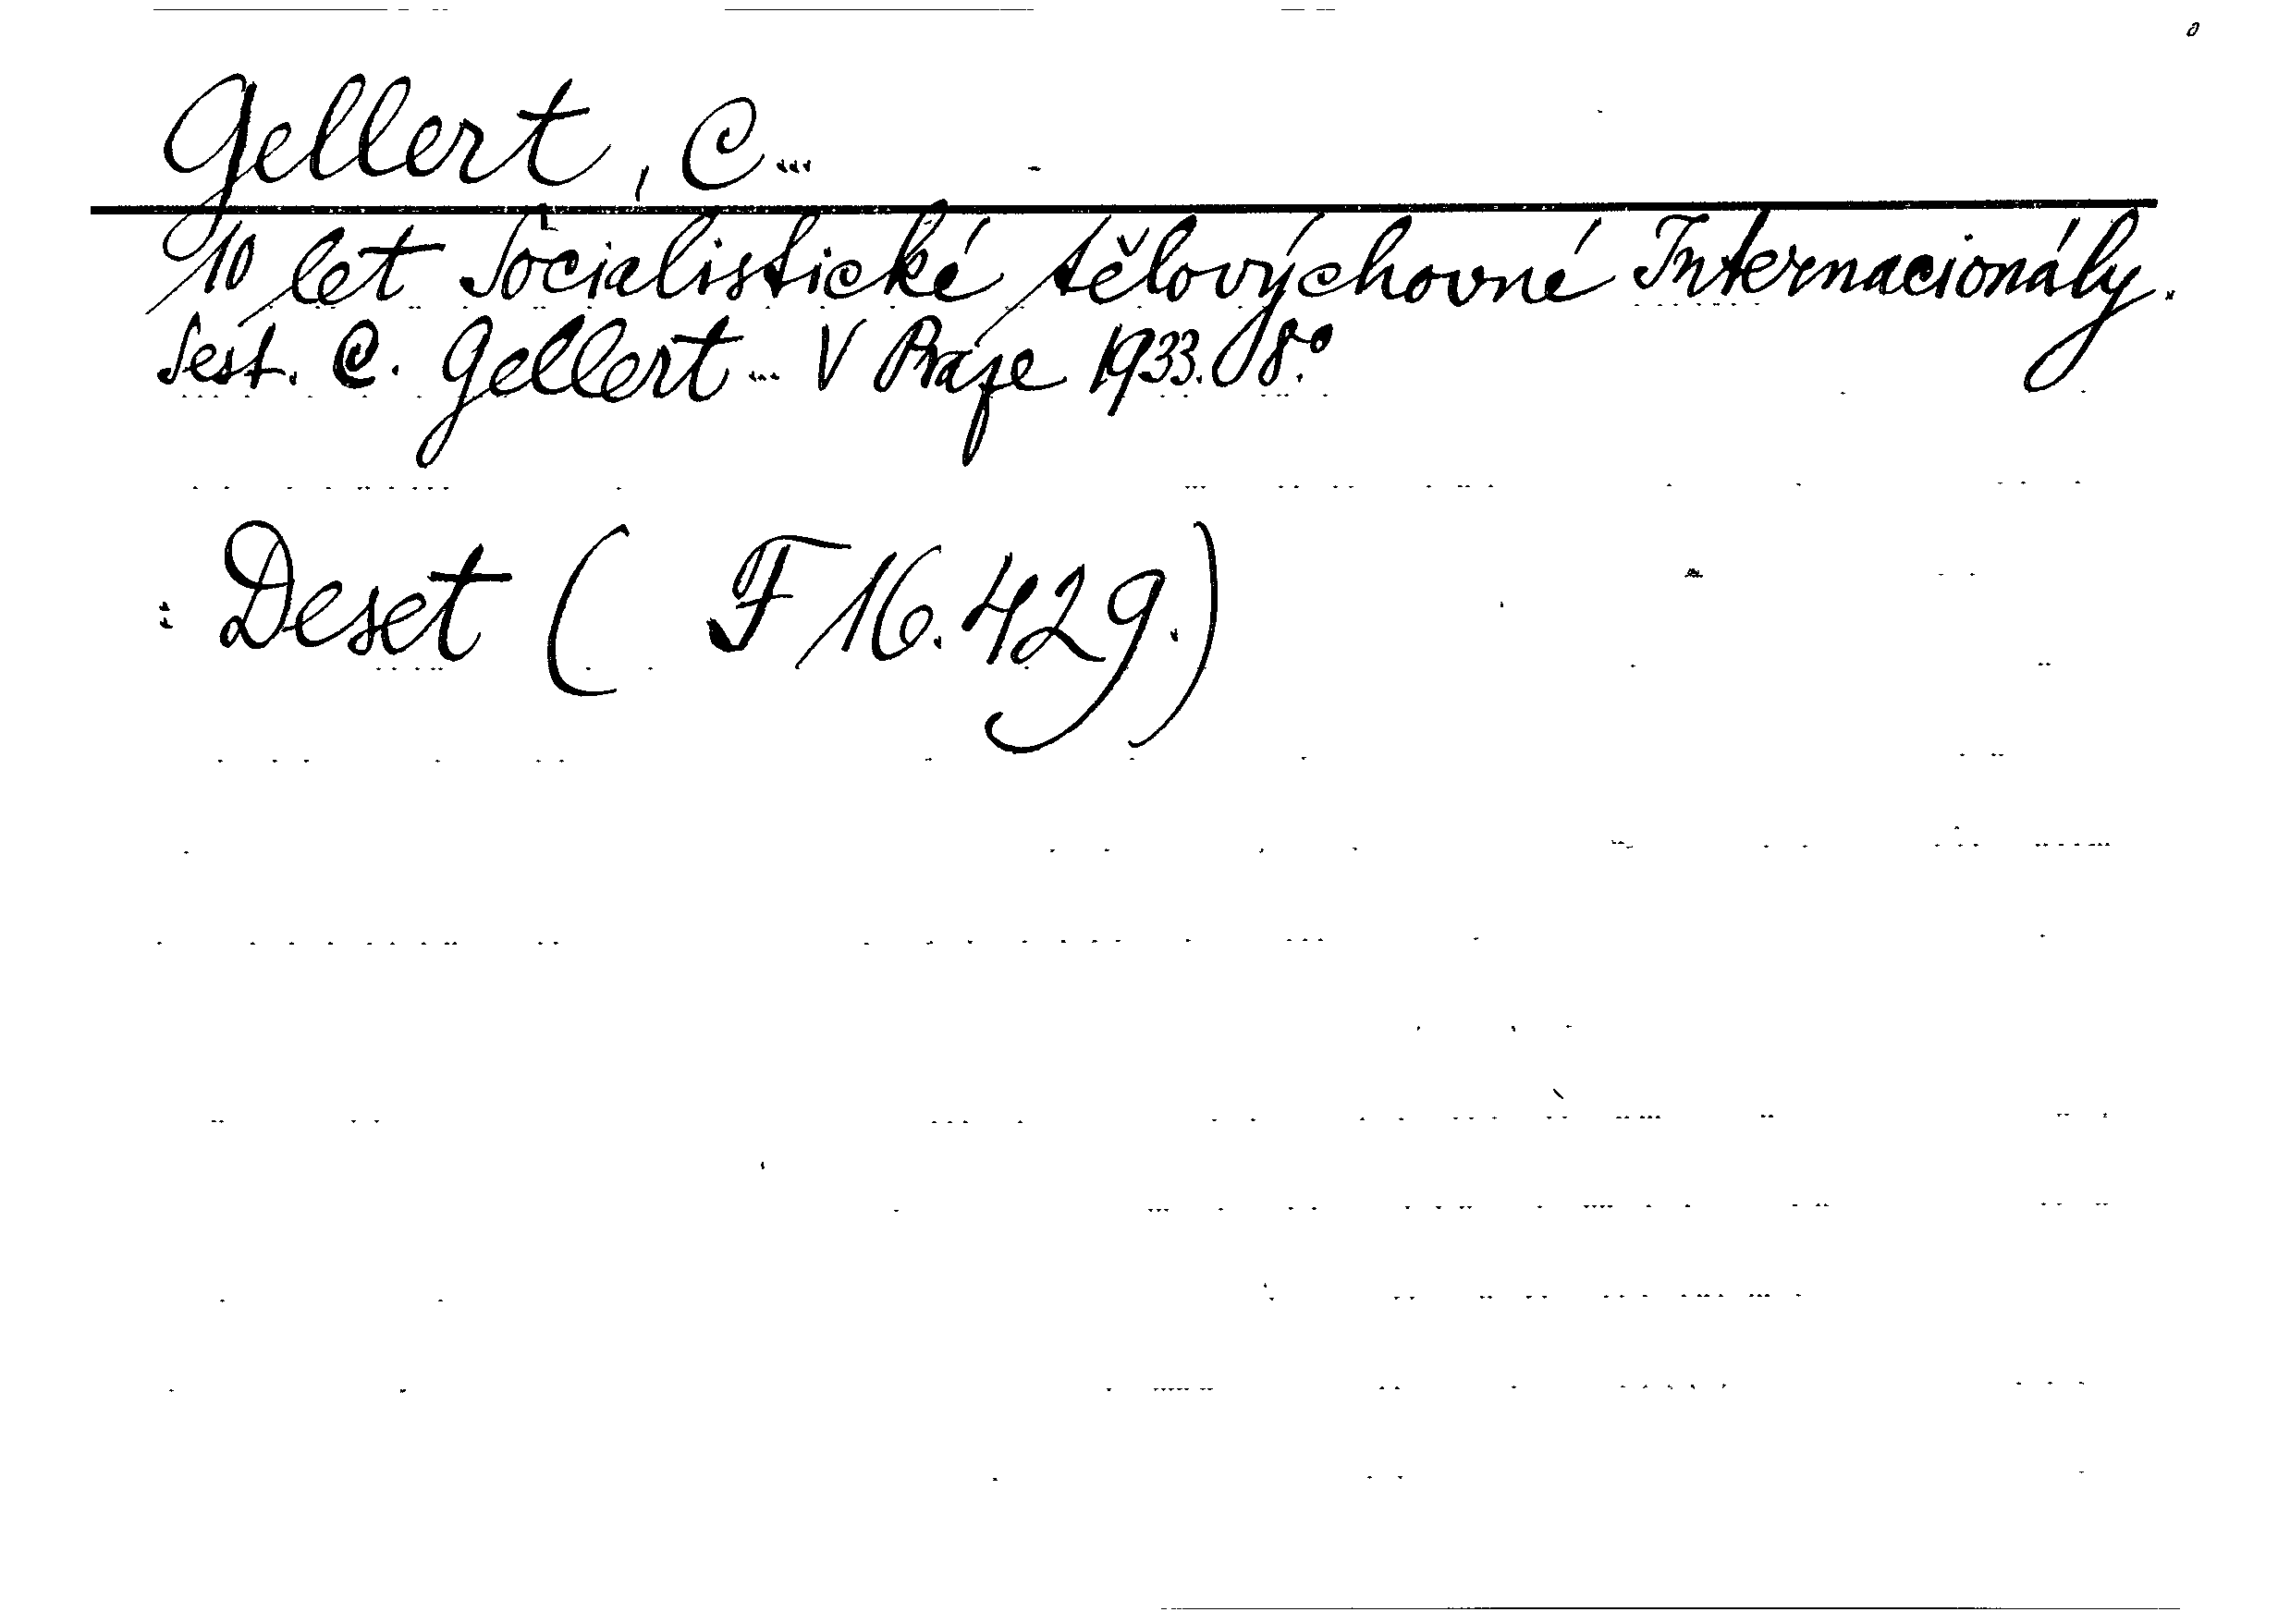 Gellert, C...
10 let Socialistické tělovýchovné Internacionály.
Sest. C. Gellert... V Praze 1933. 8.°
: Deset ( F 16.429.)